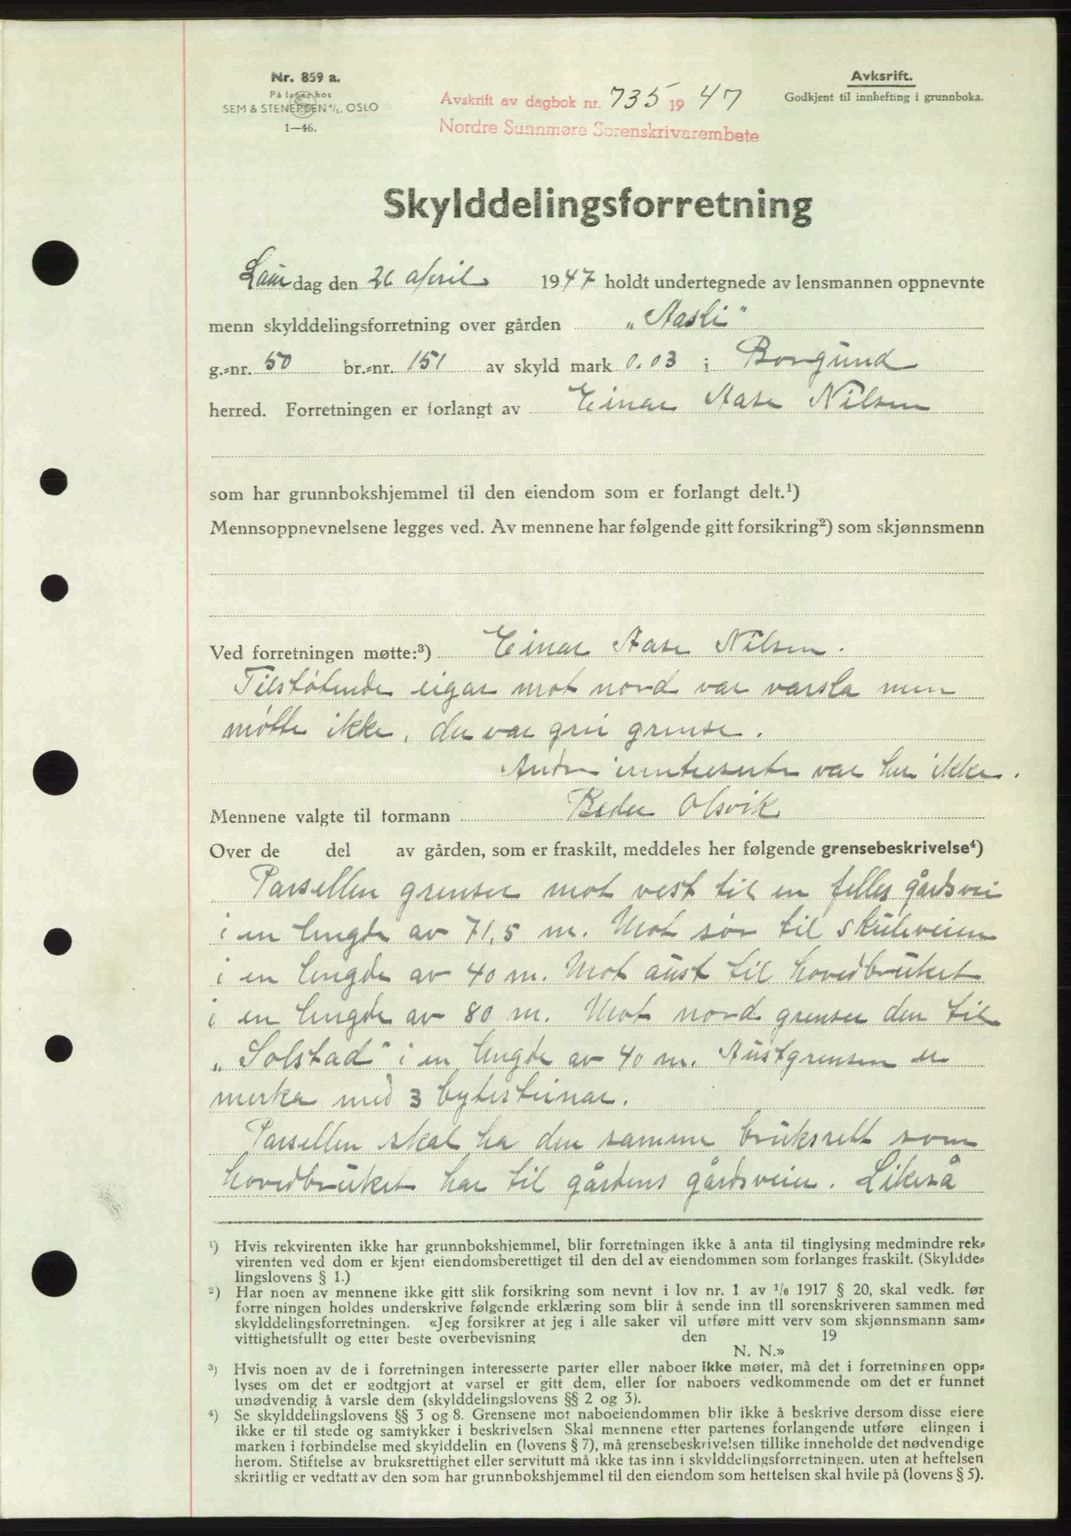 Nr. 859 a.
På lager hos
SEM & STENERSEN A/S. OSLO
1—46.
Avskrift av dagbok nr. 735 19 47
Nordre Sunnmøre Sorenskrivarembete
Avksrift.
Godkjent til innhefting i grunnboka.
Skylddelingsforretning
Laur dag den 26 april 1947 holdt undertegnede av lensmannen oppnevnte
menn skylddelingsforretning over gården „Aasli"
g.=nr. 50 br.=nr. 151 av skyld mark 0.03 i Borgund
herred. Forretningen er forlangt av Einar Aase Nilsen
som har grunnbokshjemmel til den eiendom som er forlangt delt.¹)
Mennsoppnevnelsene legges ved. Av mennene har følgende gitt forsikring²) som skjønnsmenn
Ved forretningen møtte:³) Einar Aase Nilsen.
Tilstøtende eigar mot nord var varsla men
møtte ikke, der var grei grense.
Andre interesserte var her ikke.
Mennene valgte til formann Peder Olsvik
Over de del av gården, som er fraskilt, meddeles her følgende grensebeskrivelse⁴)
Parsellen grenser mot vest til en felles gårdsvei
i en lengde av 71,5 m. Mot sør til skuleveien
i en lengde av 40 m. Mot aust til hovedbruket
i en lengde av 80 m. Mot nord grenser den til
„Solstad" i en lengde av 40 m. Austgrensen er
merka med 3 bytesteinar.
Parsellen skal ha den samme bruksrett som
hovedbruket har til gårdens gårdsveier. Likeså
¹) Hvis rekvirenten ikke har grunnbokshjemmel, blir forretningen ikke å anta til tinglysing medmindre rek=
virenten ved dom er kjent eiendomsberettiget til den del av eiendommen som forlanges fraskilt. (Skyldde=
lingslovens § 1.)
²) Har noen av mennene ikke gitt slik forsikring som nevnt i lov nr. 1 av 1/6 1917 § 20, skal vedk. før
forre ningen holdes underskrive følgende erklæring som blir å sende inn til sorenskriveren sammen med
skylddelingsforretningen. «Jeg forsikrer at jeg i alle saker vil utføre mitt verv som skjønnsmann sam=
vittighetsfullt og etter beste overbevisning den 19
N. N.»
³) Hvis noen av de i forretningen interesserte parter eller naboer ikke møter, må det i forretningen opp=
lyses om det er godtgjort at varsel er gitt dem, eller for naboers vedkommende om det er funnet
unødvendig å varsle dem (skylddelingslovens §§ 2 og 3).
⁴) Se skylddelingslovens §§ 3 og 8. Grensene mot naboeiendommen blir ikke å beskrive dersom disse eiere
ikke er til stede og samtykker i beskrivelsen Skal mennene etter partenes forlangende utføre elingen i
marken i forbindelse med skylddelin en (lovens § 7), må grensebeskrivelsen tillike inneholde det nødvendige
herom. Stiftelse av bruksrettighet eller servitutt må ikke tas inn i skylddelingsforretningen, uten at heftelsen
skriftlig er vedtatt av den som har grunnbokshjemmel til den eiendom som heftelsen skal hvile på (lovens § 5).